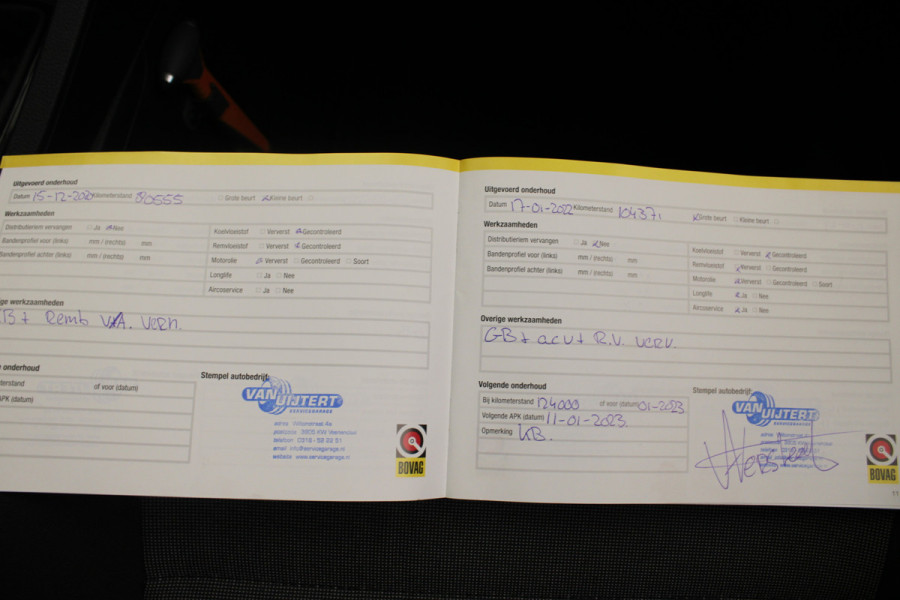 Uitgevoerd onderhoud
Datum 15-12-2020 Kilometerstand 80555 Grote beurt Kleine beurt
Werkzaamheden
Distributieriem vervangen Ja Nee
Bandenprofiel voor (links) mm / (rechts) mm
Bandenprofiel achter (links) mm / (rechts) mm
Koelvloeistof Ververst Gecontroleerd
Remvloeistof Ververst Gecontroleerd
Motorolie Ververst Gecontroleerd Soort
Longlife Ja Nee
Aircoservice Ja Nee
ge werkzaamheden
B + Remb V.A. vern.
onderhoud
terstand of voor (datum)
APK (datum)
Stempel autobedrijf:
VAN UIJTERT
SERVICEGARAGE
adres Nijlonstraat 4a
telefoon 0318 - 59 29 51
email info@servicegarage.nl
website www.servicegarage.nl
BOVAG
Uitgevoerd onderhoud
Datum 17-01-2022 Kilometerstand 104371 Grote beurt Kleine beurt
Werkzaamheden
Distributieriem vervangen Ja Nee
Bandenprofiel voor (links) mm / (rechts) mm
Bandenprofiel achter (links) mm / (rechts) mm
Koelvloeistof Ververst Gecontroleerd
Remvloeistof Ververst Gecontroleerd
Motorolie Ververst Gecontroleerd Soort
Longlife Ja Nee
Aircoservice Ja Nee
Overige werkzaamheden
GB + accu + R.V. verv.
Volgende onderhoud
Bij kilometerstand 124000 of voor (datum) 01-2023
Volgende APK (datum) 11-01-2023
Opmerking KB.
Stempel autobedrijf:
VAN UIJTERT
SERVICEGARAGE
BOVAG
11